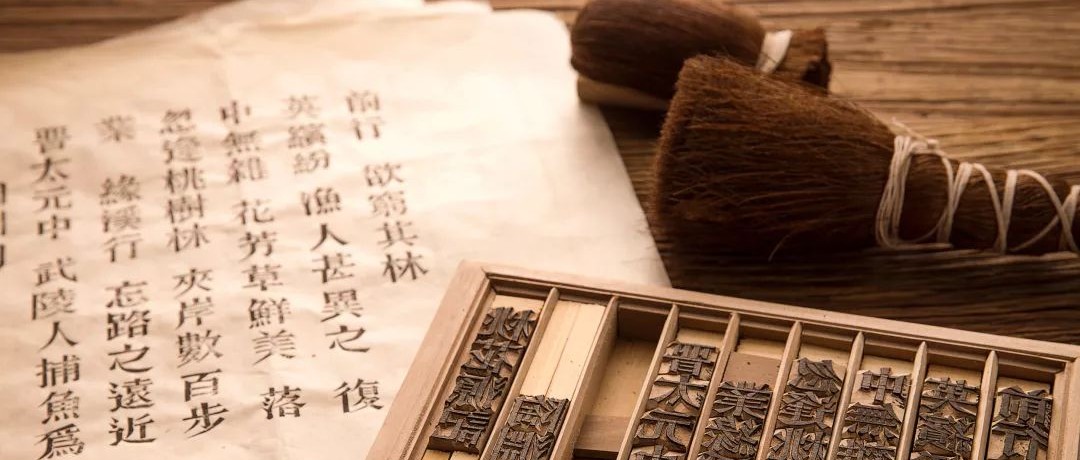 晉太元中 武陵人捕魚爲
業 緣溪行 忘路之遠近
忽逢桃樹林 夾岸數百步
中無雜 花芳草鮮美 落
英繽紛 漁人甚異之 復
前行 欲窮其林
晉太元
業緣
忽逢
中無
英繽
前行